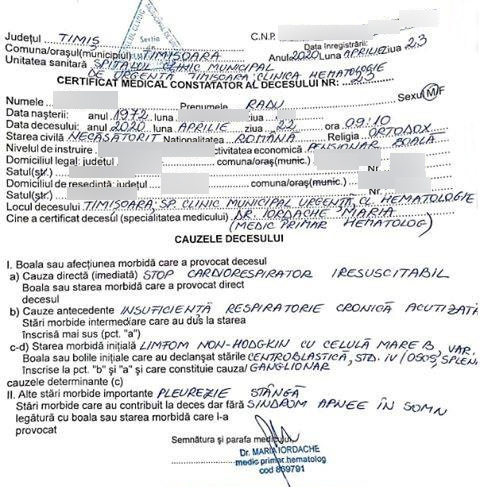 Județul TIMIȘ
C.N.P.
Data înregistrării:
Comuna/orașul(municipiul) TIMIȘOARA
Anul 2020 Luna APRILIE Ziua 23
Unitatea sanitară SPITALUL CLINIC MUNICIPAL
DE URGENȚĂ TIMIȘOARA CLINICA HEMATOLOGIE
CERTIFICAT MEDICAL CONSTATATOR AL DECESULUI NR: 23
Numele Prenumele RADU Sexul M/F
Data nașterii: anul 1972 luna
Data decesului: anul 2020 luna APRILIE ziua 22 ora 09:10
Starea civilă NECĂSĂTORIT Naționalitatea ROMÂNĂ Religia ORTODOX
Nivelul de instruire ctivitatea economică PENSIONAR BOALĂ
Domiciliul legal: județul comuna/oraș(munic.)
Satul(str.) Nr.
Domiciliul de reședință: județul comuna/oraș(munic.)
Satul(str.) Nr.
Locul decesului TIMIȘOARA, SP. CLINIC MUNICIPAL URGENȚĂ, CL. HEMATOLOGIE
Cine a certificat decesul (specialitatea medicului) DR. IORDACHE MARIA
(MEDIC PRIMAR HEMATOLOG)
CAUZELE DECESULUI
I. Boala sau afecțiunea morbidă care a provocat decesul
a) Cauza directă (imediată) STOP CARDIORESPIRATOR IRESUSCITABIL
Boala sau starea morbidă care a provocat direct
decesul
b) Cauze antecedente INSUFICIENȚĂ RESPIRATORIE CRONICĂ ACUTIZATĂ
Stări morbide intermediare care au dus la starea
înscrisă mai sus (pct. "a")
c-d) Starea morbidă inițială LIMFOM NON-HODGKIN CU CELULĂ MARE B, VAR.
Boala sau bolile inițiale care au declanșat stările CENTROBLASTICĂ, STD. IV SPLEN
Înscrise la pct. "b" și "a" și care constituie cauza/ GANGLIONAR
cauzele determinante (c)
II. Alte stări morbide importante PLEUREZIE STÂNGĂ
Stări morbide care au contribuit la deces dar fără SINDROM APNEE ÎN SOMN
legătură cu boala sau starea morbidă care l-a
provocat
Semnătura și parafa medicului
Dr. MARIA IORDACHE
medic primar hematolog
cod 839791